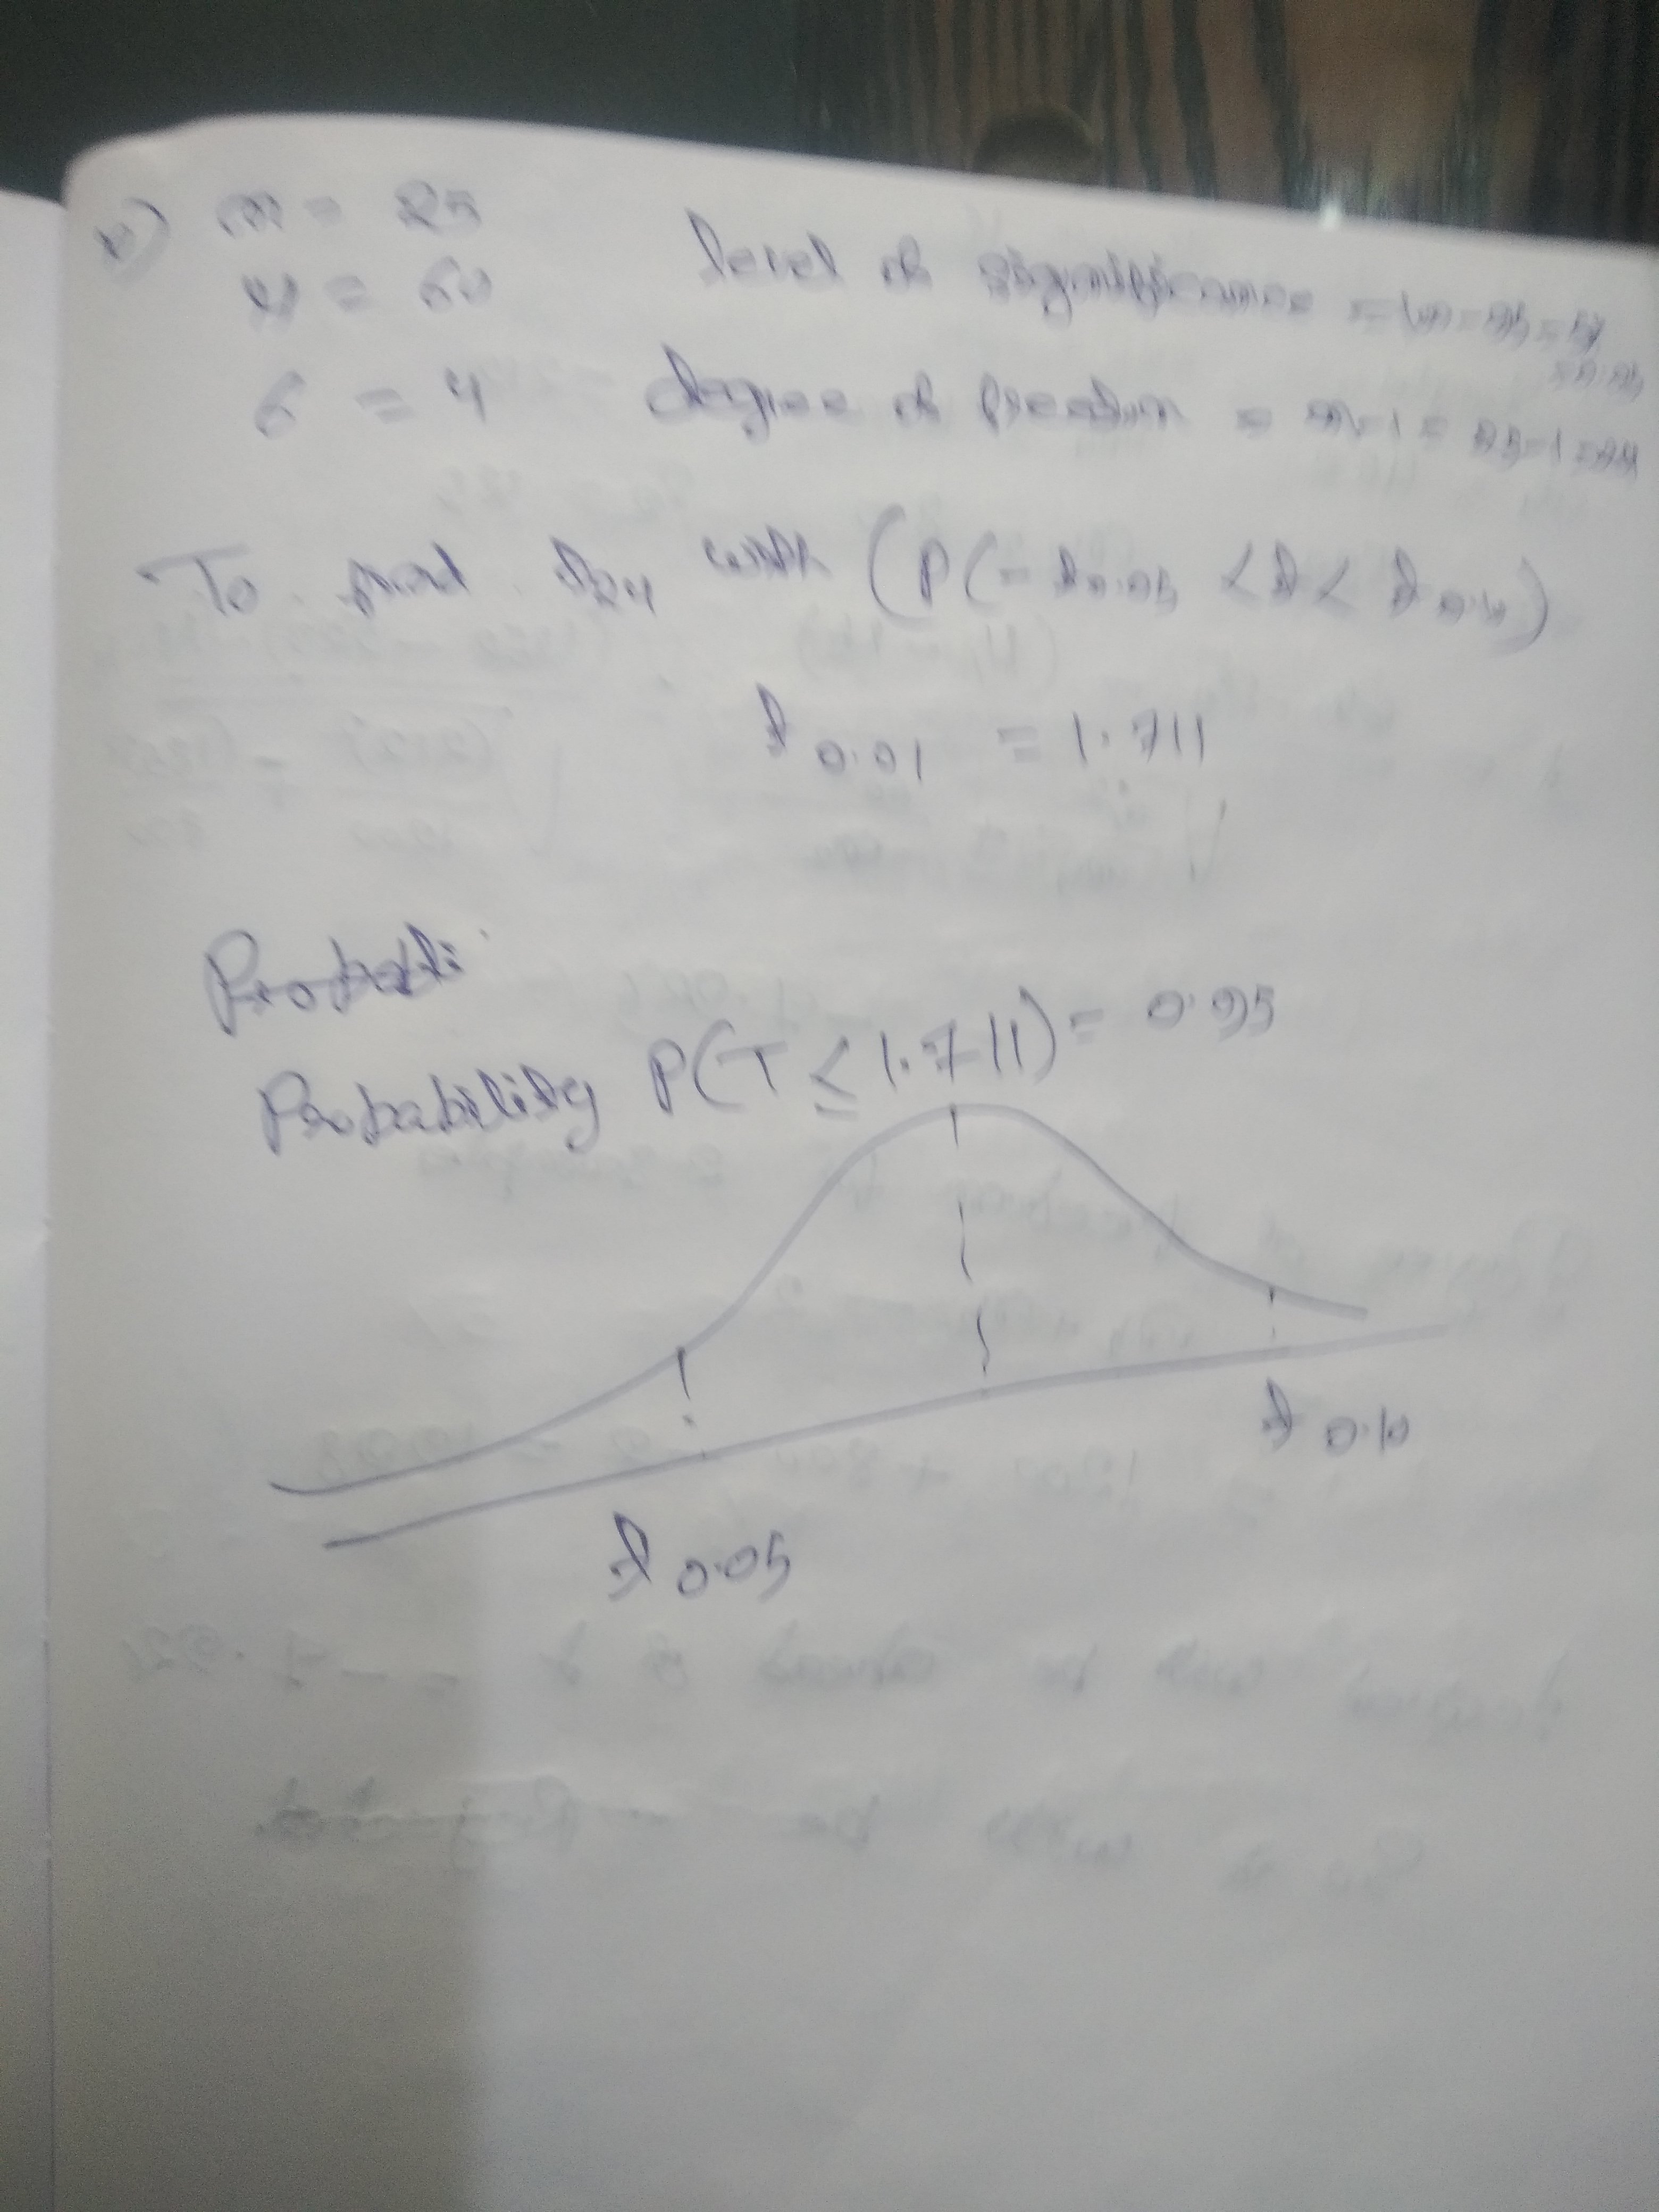 n = 25
μ = 60
level of significance = 100-95 = 5%
= 0.05
6 = 4
degree of freedom = n-1 = 25-1=24
To find t24 with (P(-t0.05 < t < t0.10)
t0.01 = 1.711
Probabili
Probability P(T ≤ 1.711) = 0.95
t0.10
t0.05